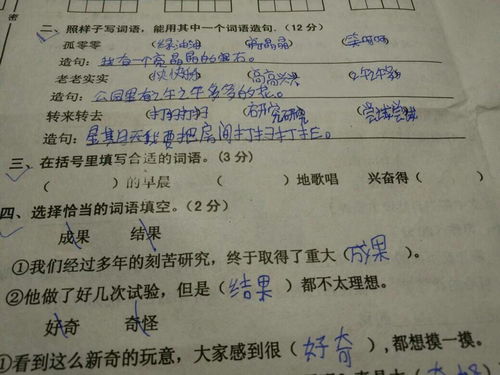 二、照样子写词语，能用其中一个词语造句．(12 分)
孤零零 (绿油油) (亮晶晶) (笑呵呵)
造句：我有一个亮晶晶的宝石。
老老实实 (快快乐乐) (高高兴兴)
造句：公园里有许许多多的花。
转来转去
造句：星期日天我要把房间打扫打扫。
三、在括号里填写合适的词语。(3 分)
( )的早晨 ( )地歌唱 兴奋得( )
四、选择恰当的词语填空。(2 分)
成果 结果
①我们经过多年的刻苦研究，终于取得了重大(成果)。
②他做了好几次试验，但是(结果)都不太理想。
好奇 奇怪
①看到这么新奇的玩意，大家感到很(好奇)，都想摸一摸。